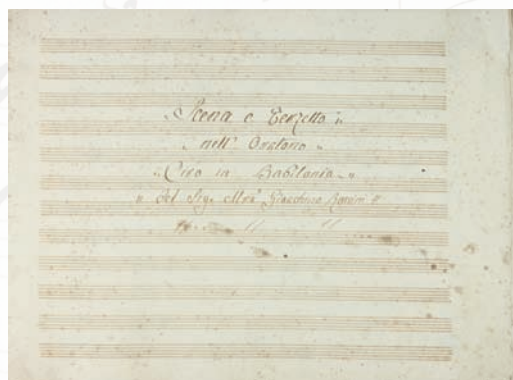 "Scena e Terzetto"
nell' Oratorio "
"Ciro in Babilonia"
" Del Sigr. Mro. Gioacchino Rossini "